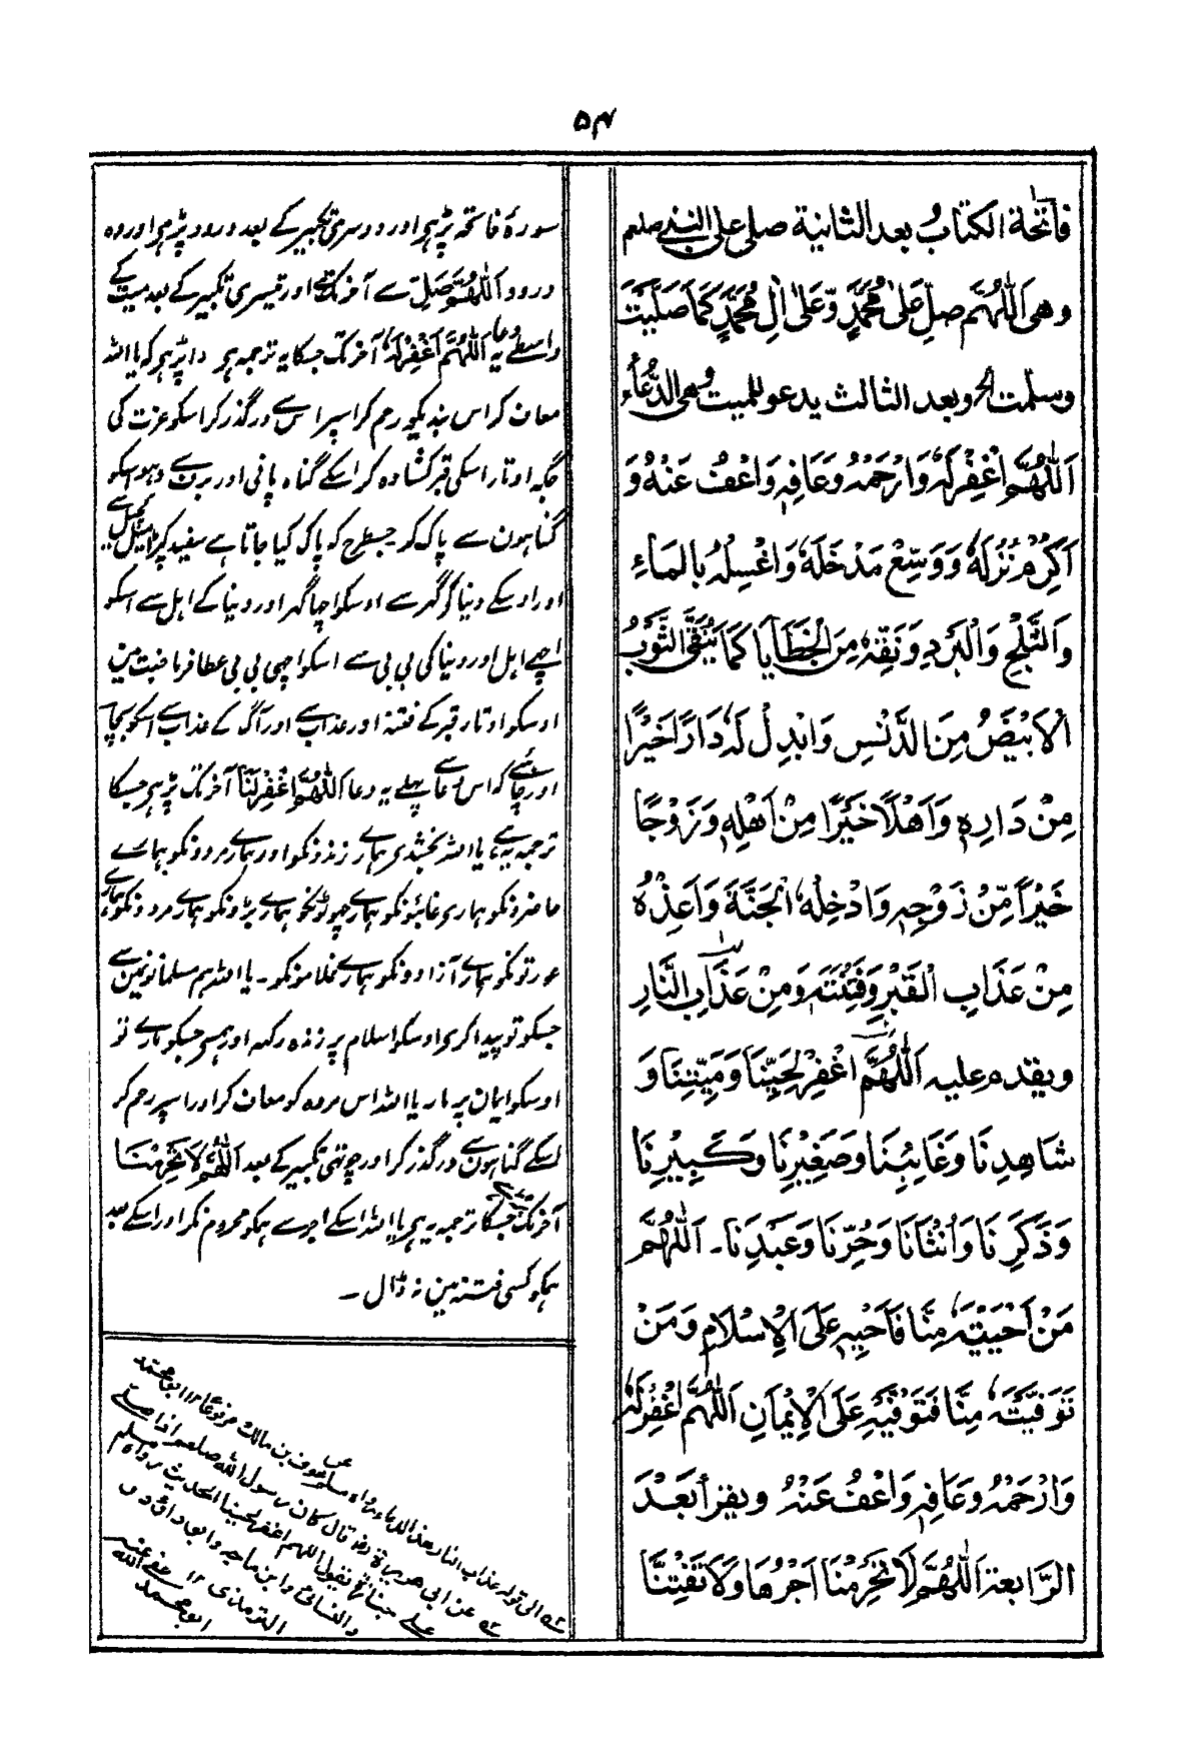 ۵۴
فاتحة الكتاب بعد الثانية صلى على النبي صلعم
وهى اَللّٰهُمَّ صلِّ عَلىٰ مُحَمَّدٍ وَّعَلىٰ اٰلِ مُحَمَّدٍ كَمَا صَلَّيْتَ
وسلمت الخ وبعد الثالث يدعو للميت وهى الدُّعَاء
اَللّٰهُمَّ اغْفِرْلَهٗ وَارْحَمْهُ وَعَافِهٖ وَاعْفُ عَنْهُ وَ
اَكْرِمْ نُزُلَهٗ وَوَسِّعْ مَدْخَلَهٗ وَاغْسِلْهُ بِالمَاءِ
وَالثَّلْجِ وَالْبَرَدِ وَنَقِّهٖ مِنَ الْخَطَايَا كَمَا يُنَقَّى الثَّوْبُ
الْاَبْيَضُ مِنَ الدَّنْسِ وَابْدِلْ لَهٗ دَارًا خَيْرًا
مِنْ دَارِهٖ وَاَهْلًا خَيْرًا مِنْ اَهْلِهٖ وَزَوْجًا
خَيْراً مِّنْ زَوْجِهٖ وَادْخِلْهُ الْجَنَّةَ وَاَعِذْهُ
مِنْ عَذَابِ الْقَبْرِ وَفِتْنَتِهٖ وَمِنْ عَذَابِ النَّارِ
ويقدم عليه اَللّٰهُمَّ اغْفِرْ لِحَيِّنَا وَمَيِّتِنَا وَ
شَاهِدِنَا وَغَائِبِنَا وَصَغِيْرِنَا وَكَبِيْرِنَا
وَذَكَرِنَا وَاُنْثَانَا وَحُرِّنَا وَعَبْدِنَا۔ اَللّٰهُمَّ
مَنْ اَحْيَيْتَهٗ مِنَّا فَاَحْيِهٖ عَلَى الْاِسْلَامِ وَمَنْ
تَوَفَّيْتَهٗ مِنَّا فَتَوَفَّهٖ عَلَى الْاِيْمَانِ اَللّٰهُمَّ اغْفِرْلَهٗ
وَارْحَمْهُ وَعَافِهٖ وَاعْفُ عَنْهُ ويقرأ بَعْدَ
الرَّابعة اَللّٰهُمَّ لَا تَحْرِمْنَا اَجْرَهَا وَلَا تَفْتِنَّا
سورۂ فاتحہ پڑہیو اور دوسری تکبیر کے بعد درود پڑہیو اور وہ
درود اَللّٰهُمَّ صَلِّ سے آخر تک ہے اور تیسری تکبیر کے بعد میت کے
واسطے یہ دعا اَللّٰهُمَّ اغْفِرْلَهٗ آخر تک جسکا یہ ترجمہ ہی پڑہو کہ یا اللہ
معاف کر اس بندیکو رحم کر اسپر اس سے درگذر کر اسکو عزت کی
جگہ اوتار اسکی قبر کشادہ کر اسکے گناہ پانی اور برف سے دہو اسکو
گناہون سے پاک کر جسطرح کہ پاک کیا جاتا ہے سفید کپڑا میل کچیل سے
اور اوسکے دنیا کے گہر سے اوسکو اچہا گہر اور دنیا کے اہل سے اسکو
اچہے اہل اور دنیا کی بی بی سے اسکو اچہی بی بی عطا فرما جنت مین
اوسکو اوتار قبر کے فتنہ اور عذاب سے اور آگ کے عذاب سے اسکو بچا
اور چاہئے کہ اس دعا سے پہلے یہ دعا اَللّٰهُمَّ اغْفِرْلَنَا آخر تک پڑہو جسکا
ترجمہ یہ ہے، یا اللہ بخشدے ہمارے زندونکو اور ہمارے مردونکو ہمارے
حاضرونکو ہماری غائبونکو ہمارے چہوٹونکو ہمارے بڑونکو ہمارے مردونکو ہمارے
عورتونکو ہمارے آزادونکو ہمارے غلامونکو۔ یا اللہ ہم مسلمانونمین سے
جسکو تو پیدا کری اوسکو اسلام پر زندہ رکہہ اور ہمسے جسکو مارے تو
اوسکو ایمان پر مار یا اللہ اس مردہ کو معاف کر اور اسپر رحم کر
اسکے گناہون سے درگذر کر اور چوتہی تکبیر کے بعد اَللّٰهُمَّ لَا تَحْرِمْنَا
آخر تک پڑہے جسکا ترجمہ یہ ہی یا اللہ اسکے اجر سے ہمکو محروم نکر اور اسکے بعد
ہمکو کسی فتنہ مین نہ ڈال ۔
الى قوله عذاب النار هذا الدعاء رواه مسلم عن عوف بن مالك مرفوعًا ۱۲ ابو محمد
عن ابى هريرة رض قال كان رسول الله صلعم اذا صلے
على جنازة يقول اللهم اغفر لحينا الحديث رواه مسلم
والنسائى وابن ماجه وابو داؤد و
الترمذى ۱۲
ابو محمد عفى عنه الله